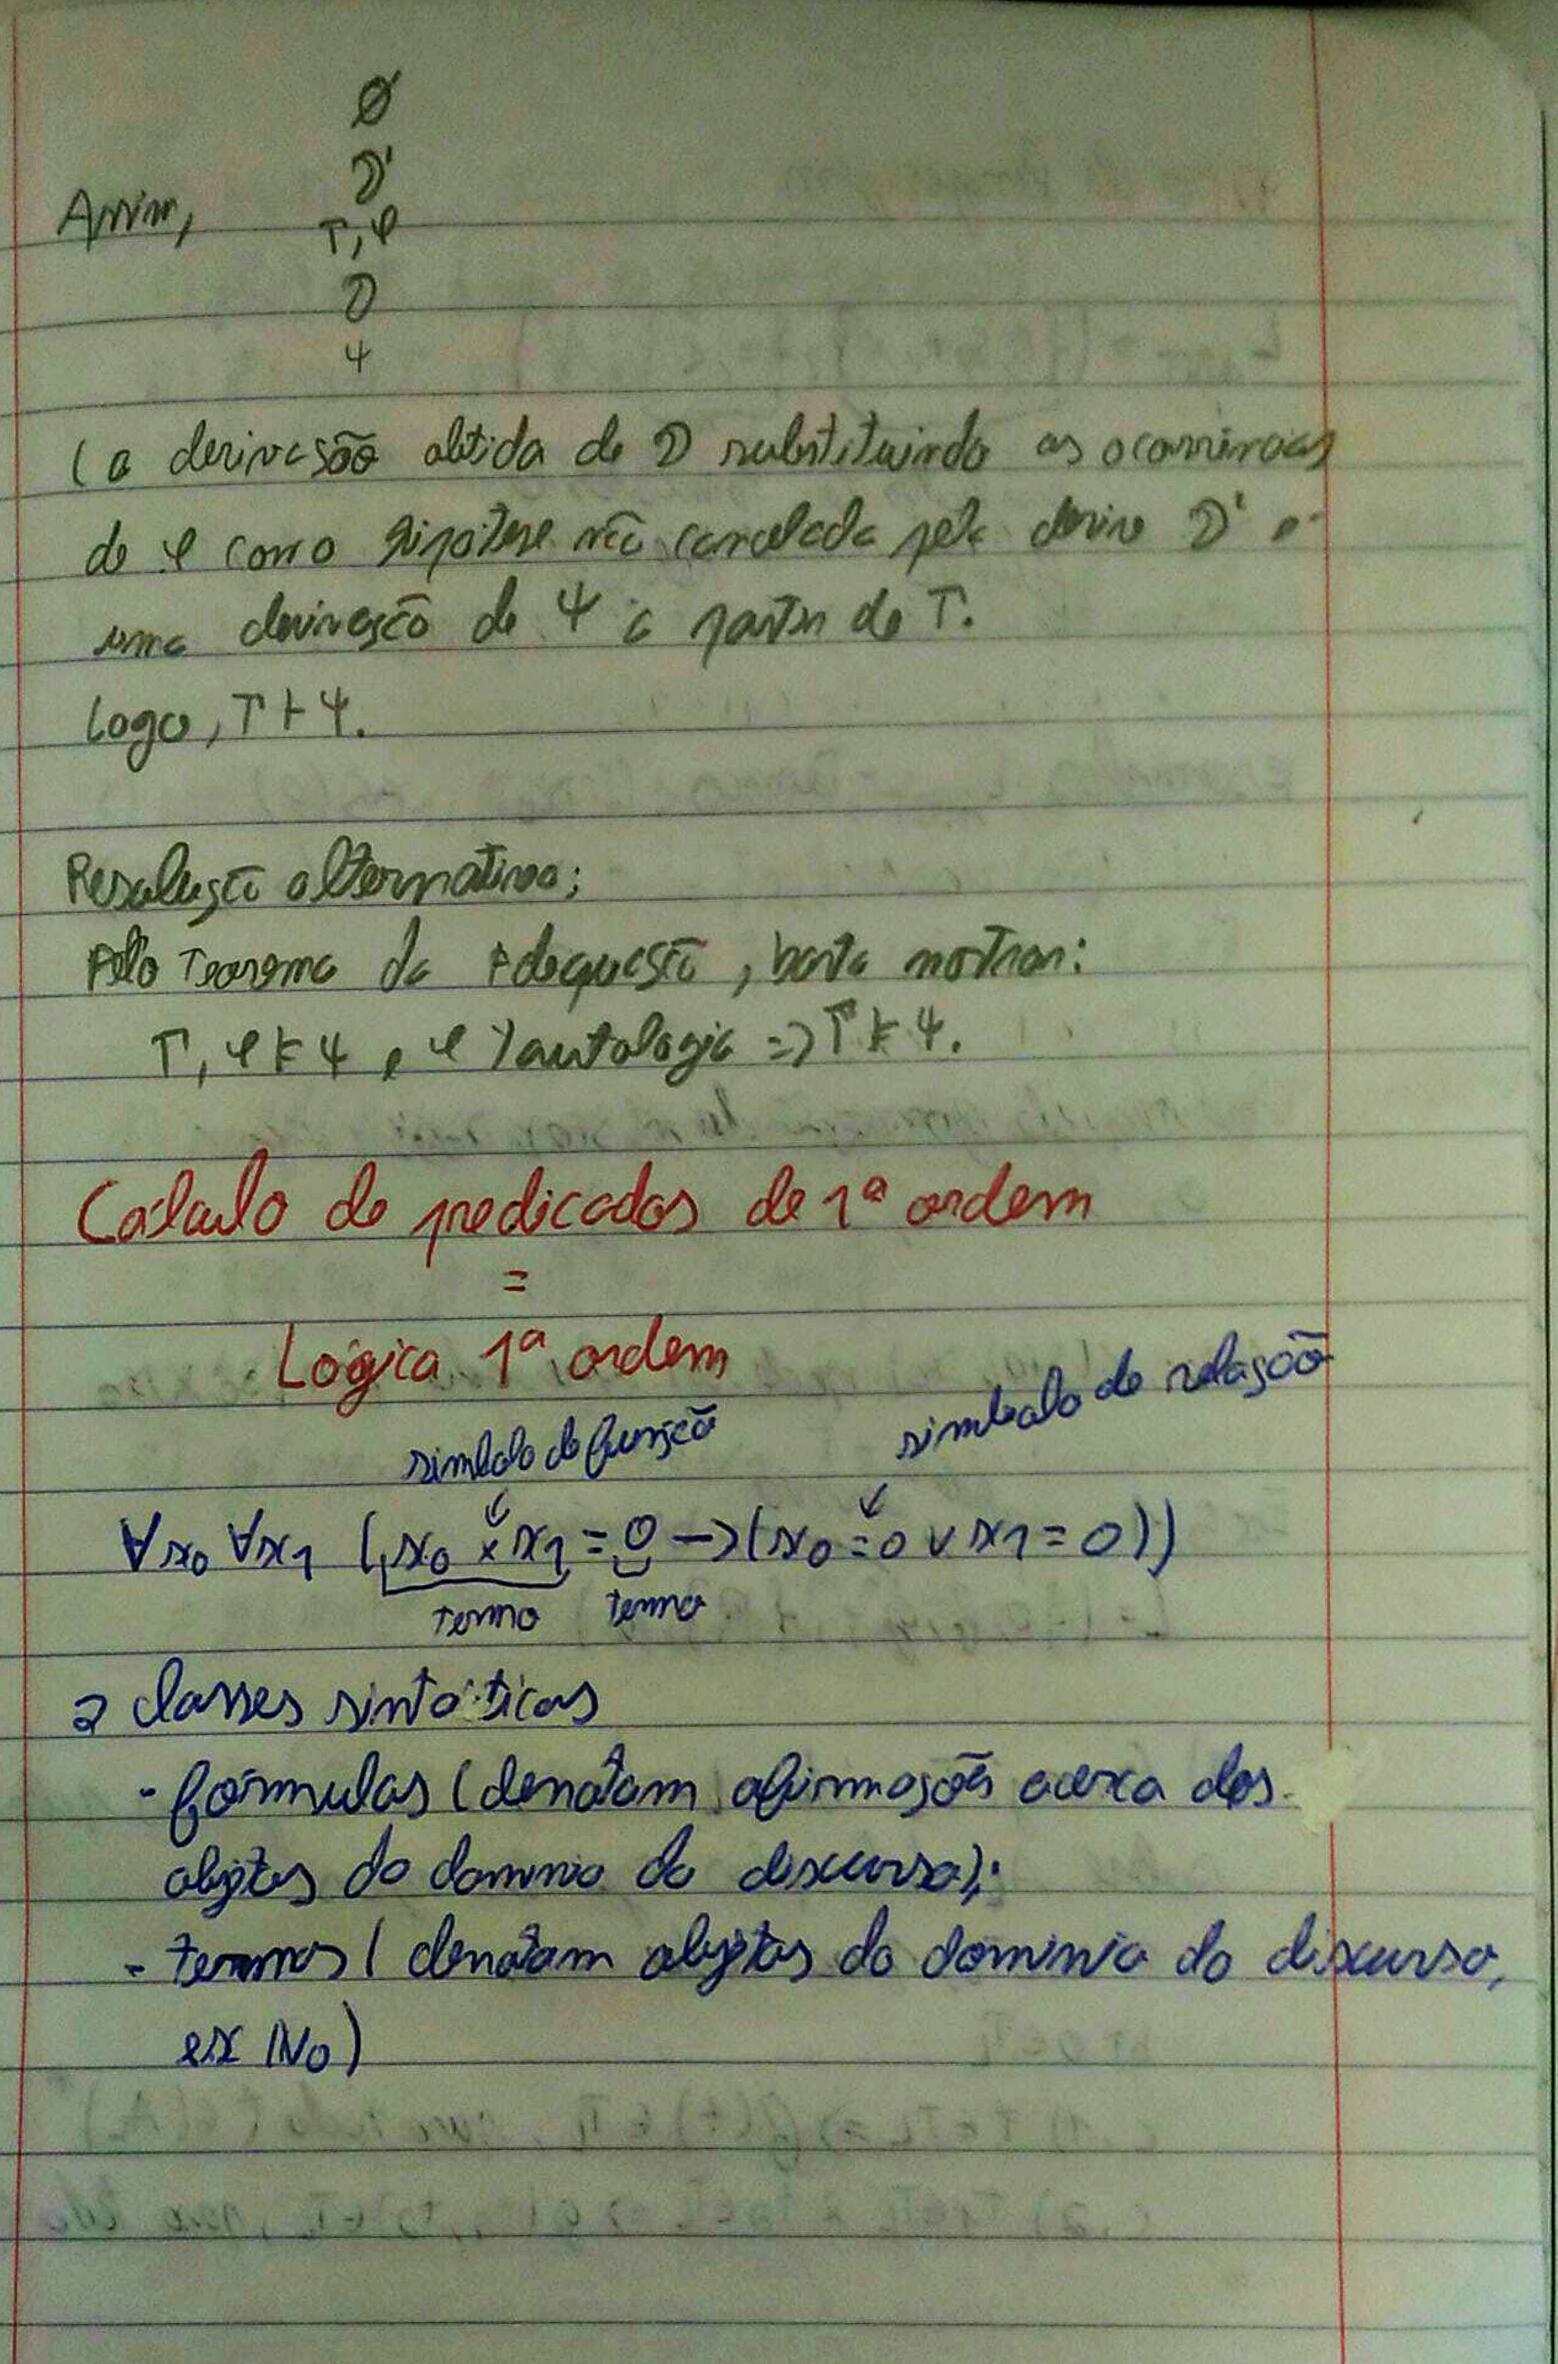 ∅
D'
Assim,
Γ, φ
D
ψ
(a derivação obtida de D substituindo as ocorrências
de φ como hipótese não cancelada pela deriv D' é
uma derivação de ψ a partir de Γ.
Logo, Γ ⊢ ψ.
Resolução alternativa:
Pelo Teorema da Adequação, basta mostrar:
Γ, φ ⊨ ψ e φ tautologia => Γ ⊨ ψ.
Cálculo de predicados de 1ª ordem
=
Lógica 1ª ordem
simbolo de relação
simbolo de função
∀x₀ ∀x₁ (x₀ × x₁ = 0 -> (x₀ = 0 ∨ x₁ = 0))
termo termo
2 classes sintáticas
- fórmulas (denotam afirmações acerca dos
objetos do dominio do discurso);
- termos (denotam objetos do dominio do discurso,
ex ℕ₀)